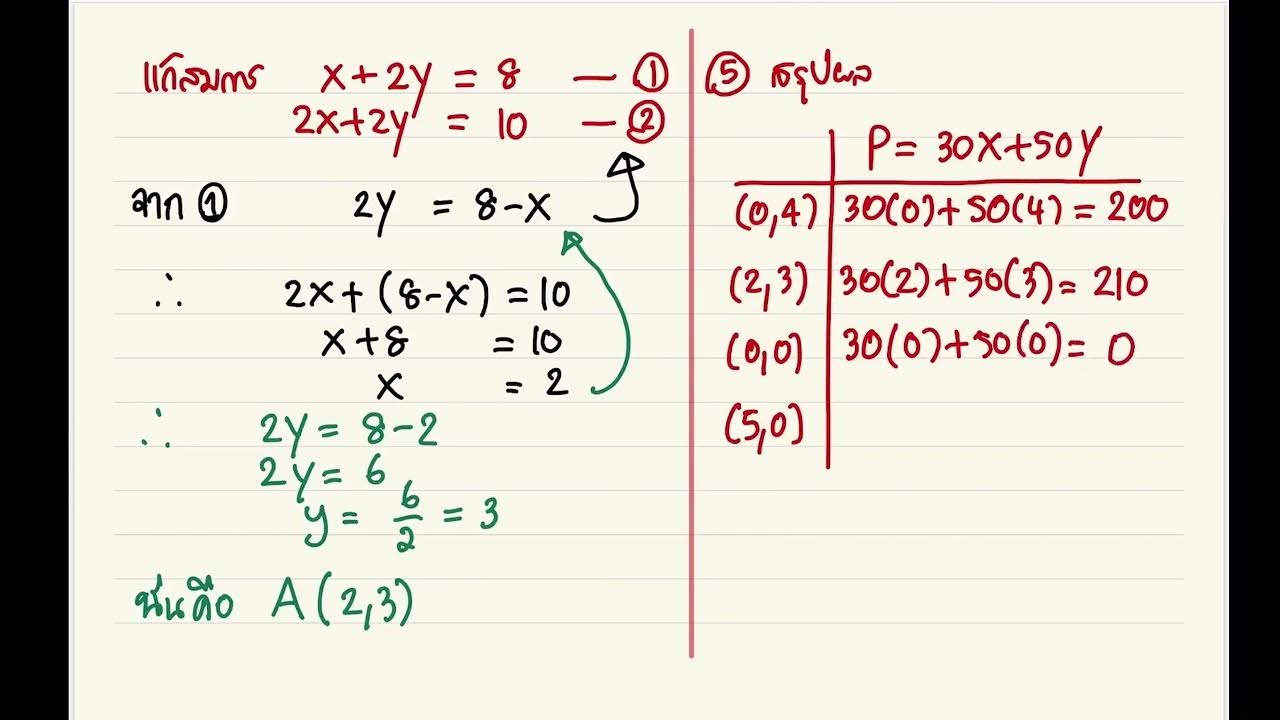 แก้สมการ x+2y = 8 — ①
2x+2y = 10 — ②
จาก ① 2y = 8-x
∴ 2x+(8-x) = 10
x+8 = 10
x = 2
∴ 2y = 8-2
2y = 6
y = 6/2 = 3
นั่นคือ A(2,3)
⑤ สรุปผล
P = 30x+50y
(0,4) 30(0)+50(4) = 200
(2,3) 30(2)+50(3) = 210
(0,0) 30(0)+50(0) = 0
(5,0)